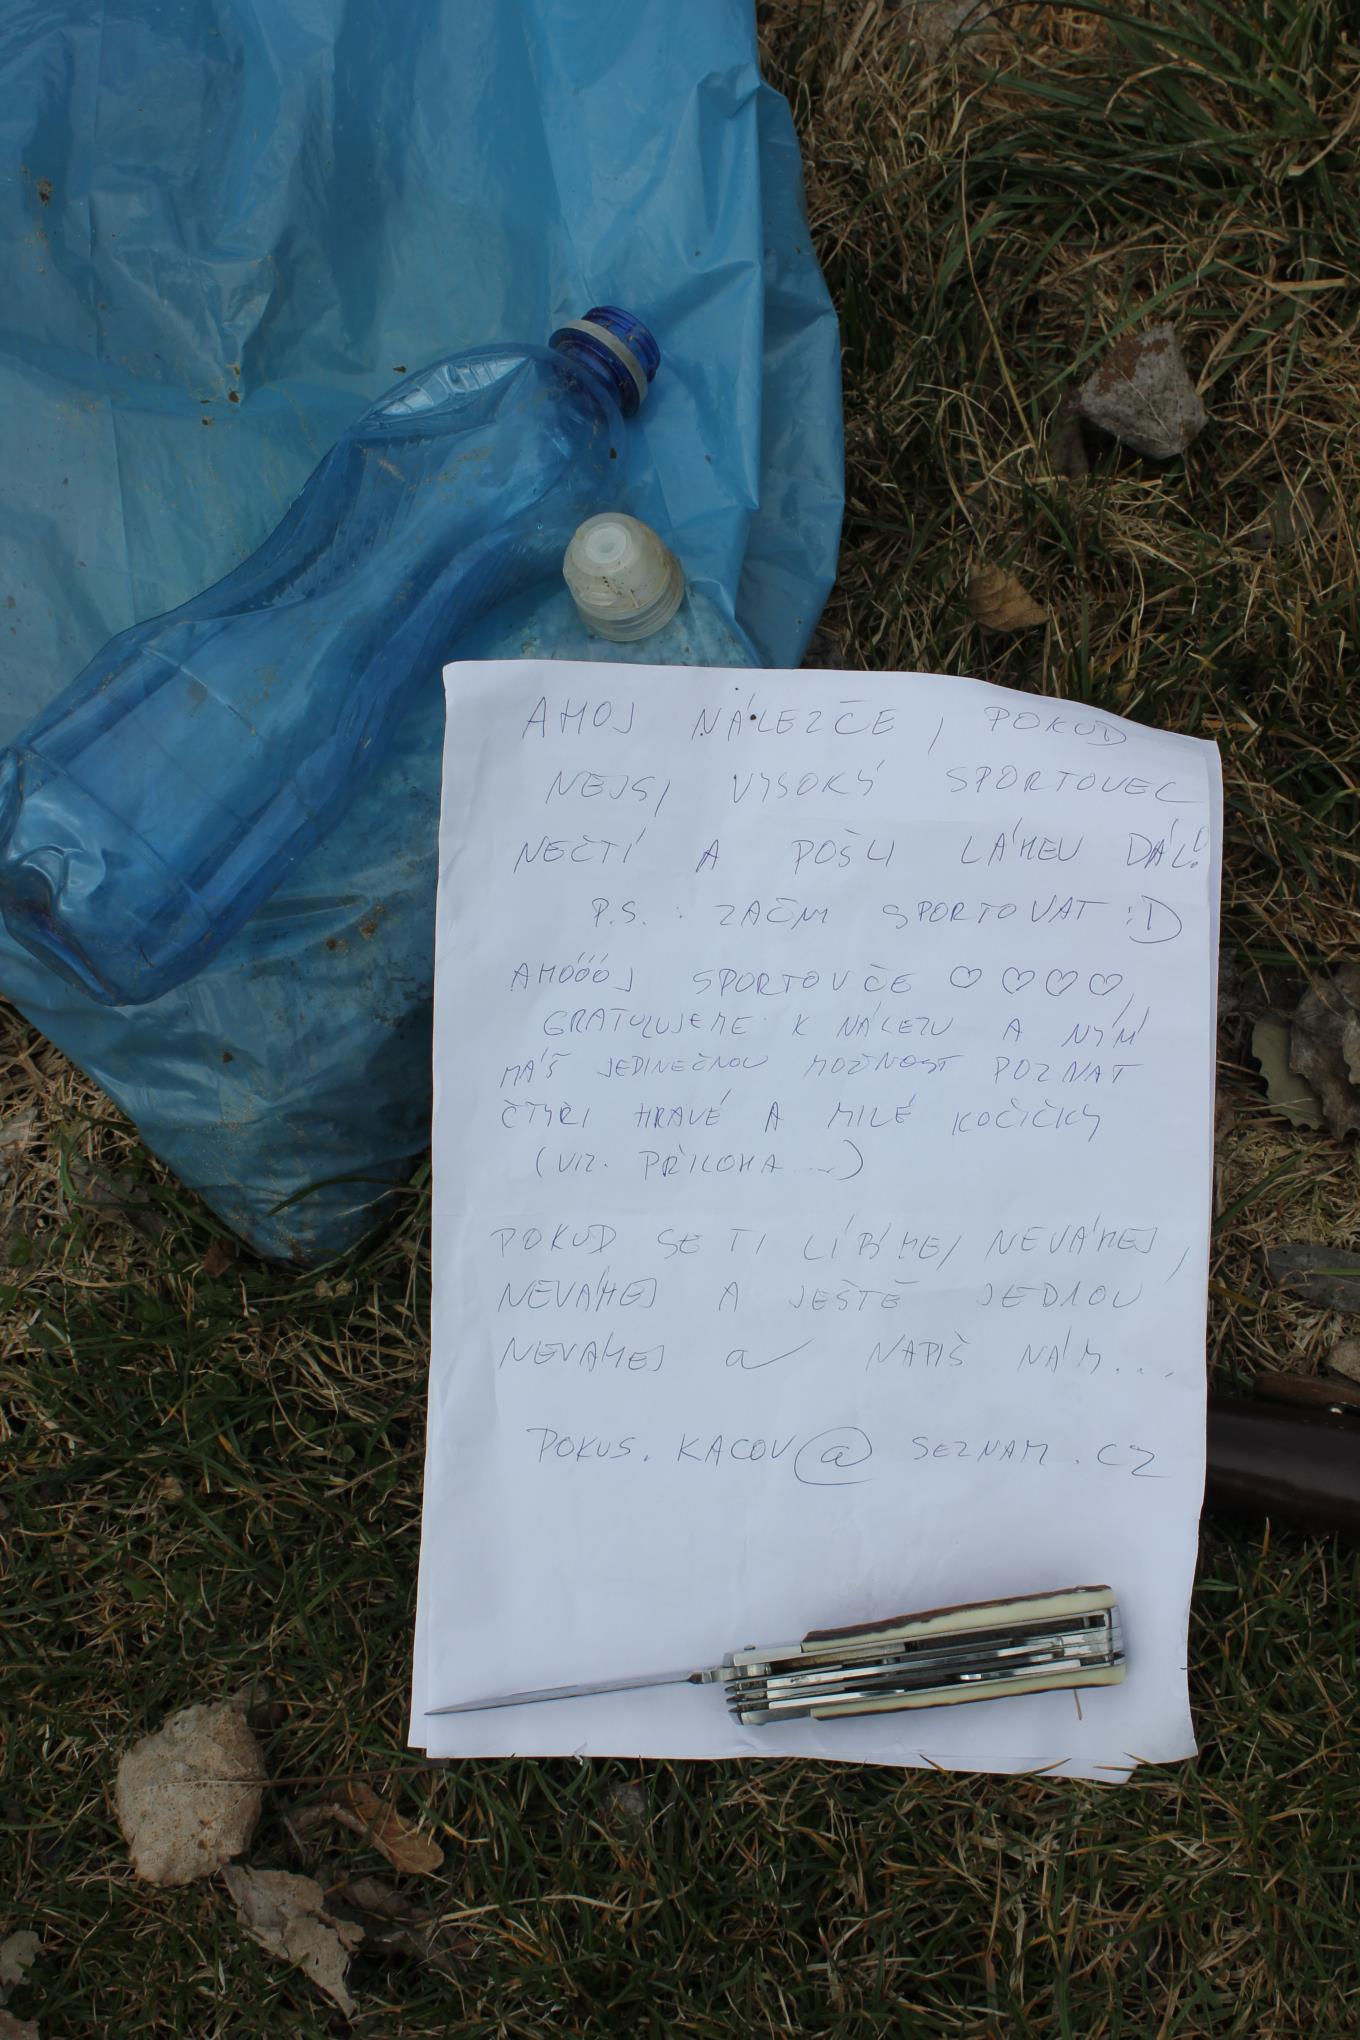 AHOJ NÁLEZČE, POKUD
NEJSI VYSOKÝ SPORTOVEC
NEČTI A POŠLI LÁHEV DÁL!
P.S.: ZAČNI SPORTOVAT :D
AHÓÓÓJ SPORTOVČE ♡♡♡♡,
GRATULUJEME K NÁLEZU A NYNÍ
MÁŠ JEDINEČNOU MOŽNOST POZNAT
ČTYŘI HRAVÉ A MILÉ KOČIČKY
(VIZ. PŘÍLOHA ...)
POKUD SE TI LÍBÍME, NEVÁHEJ,
NEVÁHEJ A JEŠTĚ JEDNOU
NEVÁHEJ a NAPIŠ NÁM...
POKUS.KACOV@SEZNAM.CZ